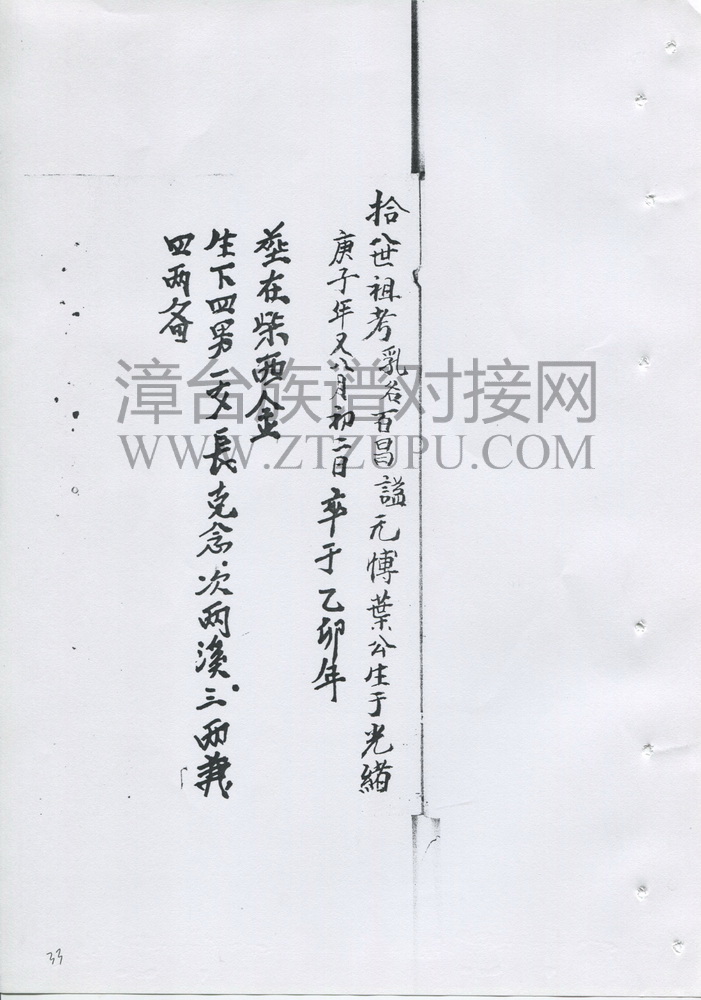 拾八世祖考乳名百昌諡元博葉公生于光緒
庚子年又八月初二日卒于乙卯年
塟在柴西金
生下四男一女長克念次两溪三两義
四两斋
漳台族谱对接网
WWW.ZTZUPU.COM
33